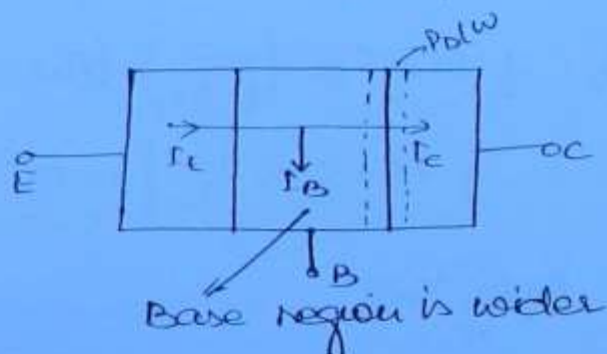 PDLW
E
I_L
I_B
I_C
C
B
Base region is wider